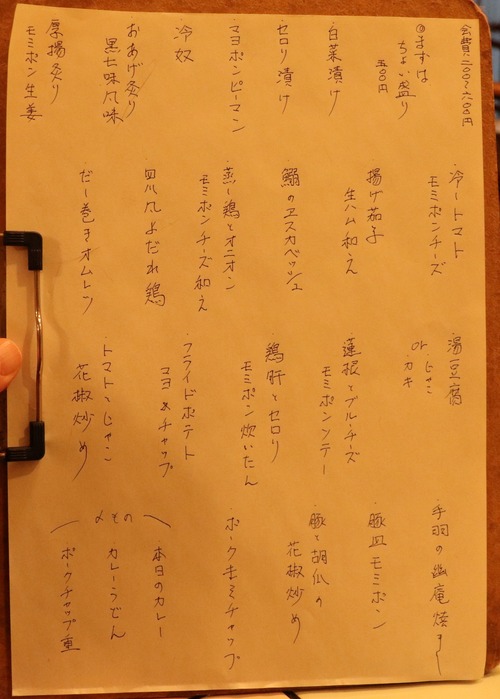 会費二〇〇〜六〇〇円
◎まずは
ちょい盛り
五〇円
・白菜漬け
・セロリ漬け
・マヨポンピーマン
・冷奴
・おあげ炙り
黒七味風味
・厚揚炙り
モミポン生姜
・冷トマト
モミポンチーズ
・揚げ茄子
生ハム和え
・鰯のエスカベッシュ
・蒸し鶏とオニオン
モミポンチーズ和え
・四川風よだれ鶏
・だし巻きオムレツ
・湯豆腐
or ・じゃこ
・カキ
・蓮根とブルーチーズ
モミポンソテー
・鶏肝とセロリ
モミポン炊いたん
・フライドポテト
マヨ&チャップ
・トマトとじゃこ
花椒炒め
・手羽の幽庵焼き
・豚皿モミポン
・豚と胡瓜の
花椒炒め
・ポークキミチャップ
〆もの
・本日のカレー
・カレーうどん
・ポークチャップ重